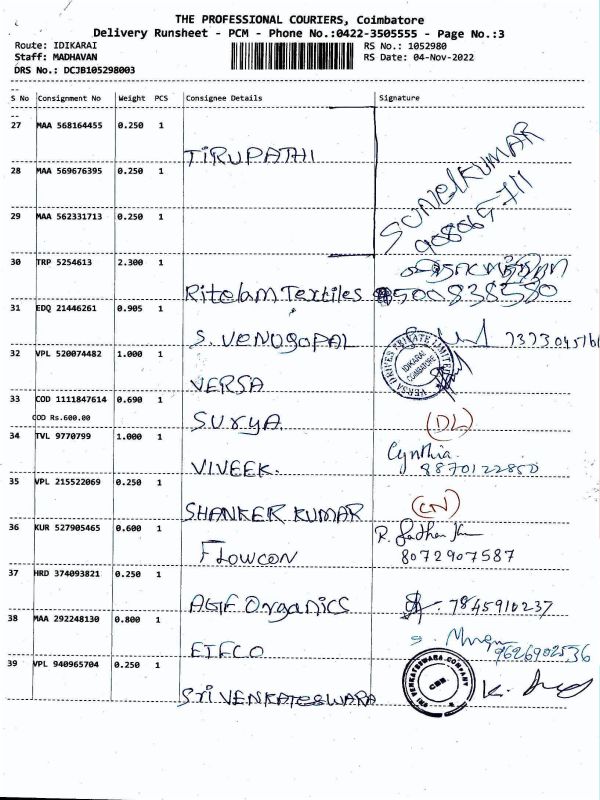 THE PROFESSIONAL COURIERS, Coimbatore
Delivery Runsheet - PCM - Phone No.:0422-3505555 - Page No.:3
Route: IDIKARAI RS No.: 1052980
Staff: MADHAVAN RS Date: 04-Nov-2022
DRS No.: DCJB105298003
S No Consignment No Weight PCS Consignee Details Signature
27 MAA 568164455 0.250 1 TIRUPATHI
28 MAA 569676395 0.250 1
29 MAA 562331713 0.250 1
30 TRP 5254613 2.300 1 Ritelam Textiles
31 EDQ 21446261 0.905 1 S. VENUGOPAL
32 VPL 520074482 1.000 1 VERSA
VERSA DRIVES PRIVATE LIMITED
IDIKARAI
COIMBATORE
33 COD 1111847614 0.690 1 Surya (DL)
COD Rs.600.00
34 TVL 9770799 1.000 1 VIVEEK. Cynthia
8870122850
35 VPL 215522069 0.250 1 SHANKER KUMAR (CN)
36 KUR 527905465 0.600 1 Flowcon
8072907587
37 HRD 374093821 0.250 1 AGIF Organics 7845910237
38 MAA 292248130 0.800 1 EIFCO 9626902536
39 VPL 940965704 0.250 1 Sri VENKATESWARA